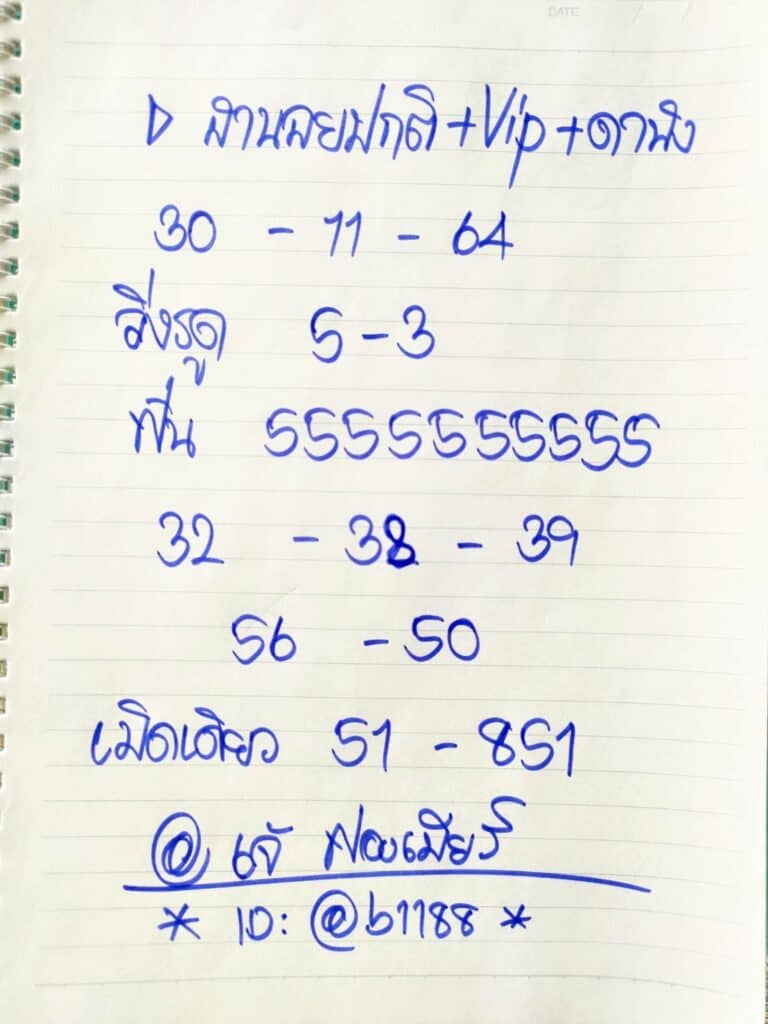 DATE / /
▷ ฮานอยปกติ+Vip+ดานัง
30 - 11 - 64
วิ่งรูด 5-3
ฟัน 5555555555
32 - 38 - 39
56 - 50
เม็ดเดียว 51 - 851
@ เจ๊ ฟองเบียร์
* ID: @b1188 *